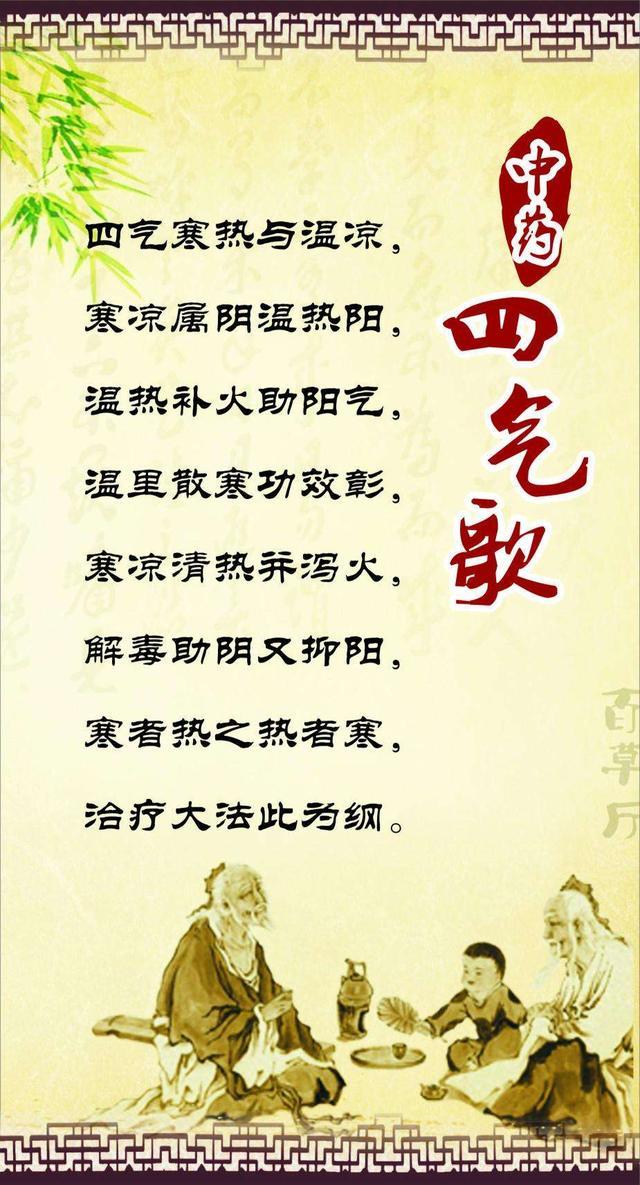 中药
四气歌
四气寒热与温凉，
寒凉属阴温热阳，
温热补火助阳气，
温里散寒功效彰，
寒凉清热并泻火，
解毒助阴又抑阳，
寒者热之热者寒，
治疗大法此为纲。
百草厅